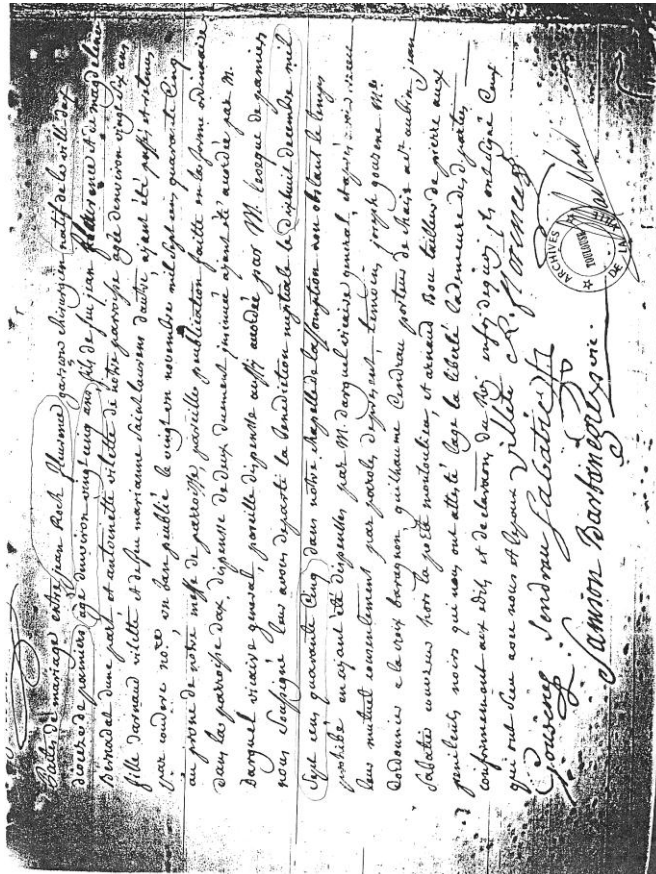 de mariage entre jean Roch fleurence garçon chirurgien natif de la ville dax
diocese de pamiers age denviron vingt cinq ans fils de feu jean fleurence et de magdelaine
Bernadat dune part, et antoinette vilette de notre paroisse agée denviron vingt six ans
fille darnaud vilette et de feu marianne saint laurens dautre ayant été passés et retenus
par me un ban publié le vingt un novembre mil sept cens quarante cinq
au prone de notre messe de parroisse, pareille publication faitte en la forme ordinaire
dans la parroisse dax, dispense de deux duement insinuée ayant été acordée par M.
Barquel vicaire general, pareille dispense aussi acordée par M. leveque de pamiers
nous soussigné leur avons departi la benediction nuptiale le dixhuit decembre mil
Sept cens quarante cinq dans notre chapelle de lassomption non obstant le temps
prohibé en ayant été dispensés par M. barquel vicaire general et apres avoir receu
leur mutuel consentement par paroles de present, temoins joseph gousine Me
Cordonnier a la croix baragnon, guilhaume Cendrau porteur de chaise a st aubin, jean
Sabatié couvreur hors la porte montoulieu, et arnaud Bon tailleur de pierre aux
penitents noirs qui nous ont attesté lage la liberté la demeure des parties
conformement aux edits et declarations du Roy, interpellés ils ont signé Ceux
qui ont sceu avec nous et lepoux villete R. florence
Gousines Sendrau Sabatié
Samson Barbane vic.
ARCHIVES
TOULOUSE
DE LA